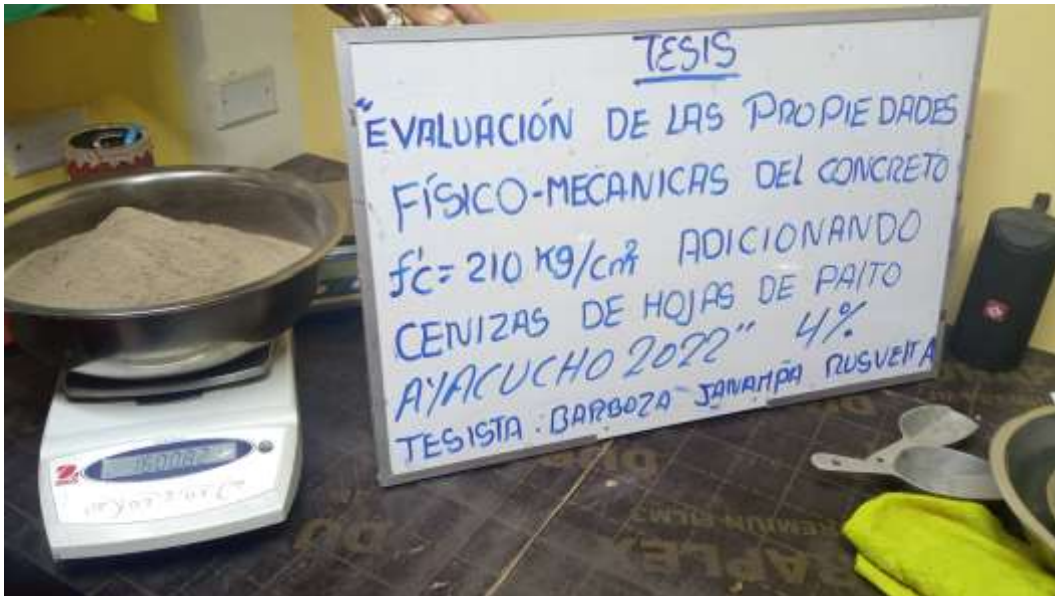 TESIS
"EVALUACIÓN DE LAS PROPIEDADES
FÍSICO-MECANICAS DEL CONCRETO
f'c= 210 Kg/cm² ADICIONANDO
CENIZAS DE HOJAS DE PALTO
AYACUCHO 2022" 4%
TESISTA: BARBOZA JANAMPA RUSVELTA
PREMIUM FILM